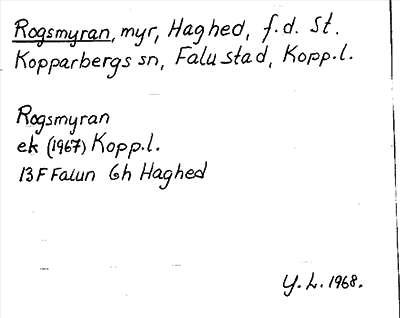 Rogsmyran, myr, Haghed, f.d. St.
Kopparbergs sn, Falu stad, Kopp.l.
Rogsmyran
ek (1967) Kopp.l.
13F Falun 6h Haghed
Y.L. 1968.